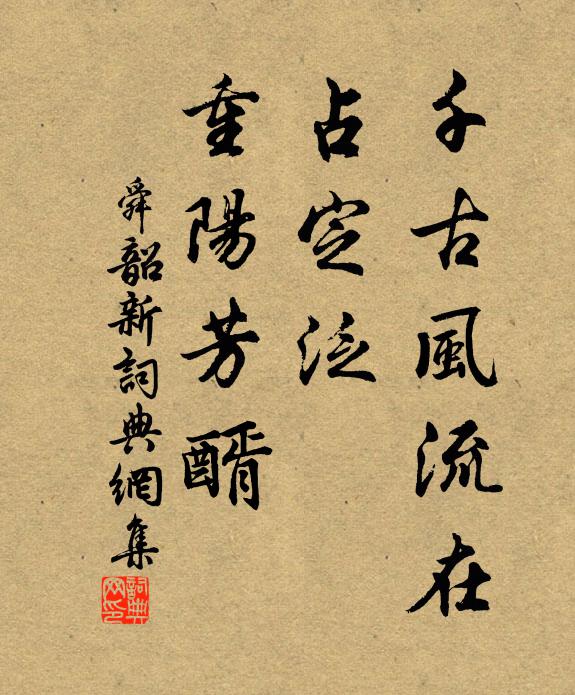 千古風流在
占定泛
重陽芳醑
舜韶新詞典網集
詞典
网印